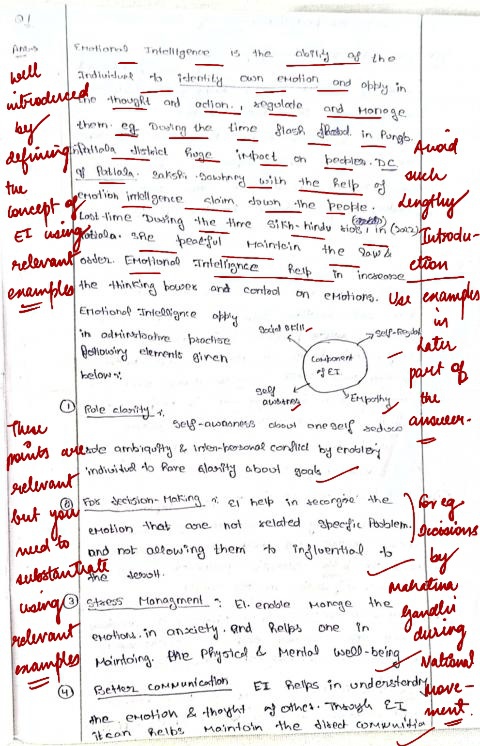 Q1
Ans:
Emotional Intelligence is the ability of the
Individual to identity own emotion and apply in
the thought and action, regulate and Manage
them. eg During the time flash flood in Punjb.
Patiala district huge impact on peoples. DC
of Patiala. Sakshi Sawhney with the help of
emotion intelligence claim down the people.
Last time During the time Sikh-hindu riots in (2022)
Patiala. She peacful Maintain the law &
order. Emotional Intelligence help in increase
the thinking power and control on emotions.
Emotional Intelligence apply
in administrative practise
following elements given
below:
Social skill
Self-Regulat
Component
of EI
Self
awarness
Empathy
① Role clarity :
Self-awarness about oneself reduce
role ambiguity & inter-personal conflict by enabling
individual to have clarity about goals
② For decision-Making : EI help in recognise the
emotion that are not related specific Problem.
and not allowing them to influential to
the result.
③ Stress Managment : EI. enable Manage the
emotions. in anxiety. and helps one in
Maintaing. the Physical & Mental well-being
④ Better communication EI helps in understandng
the emotion & thought of others. Through EI
it can helps Maintain the direct communitia
Well
introduced
by
defining
the
concept of
EI using
relevant
examples
Avoid
such
lengthy
Introdu-
ction
Use examples
in
later
part of
the
answer.
These
points are
relevant
but you
need to
substantiate
using
relevant
examples
for eg
Decisions
by
Mahatma
Gandhi
during
National
Move-
ment.